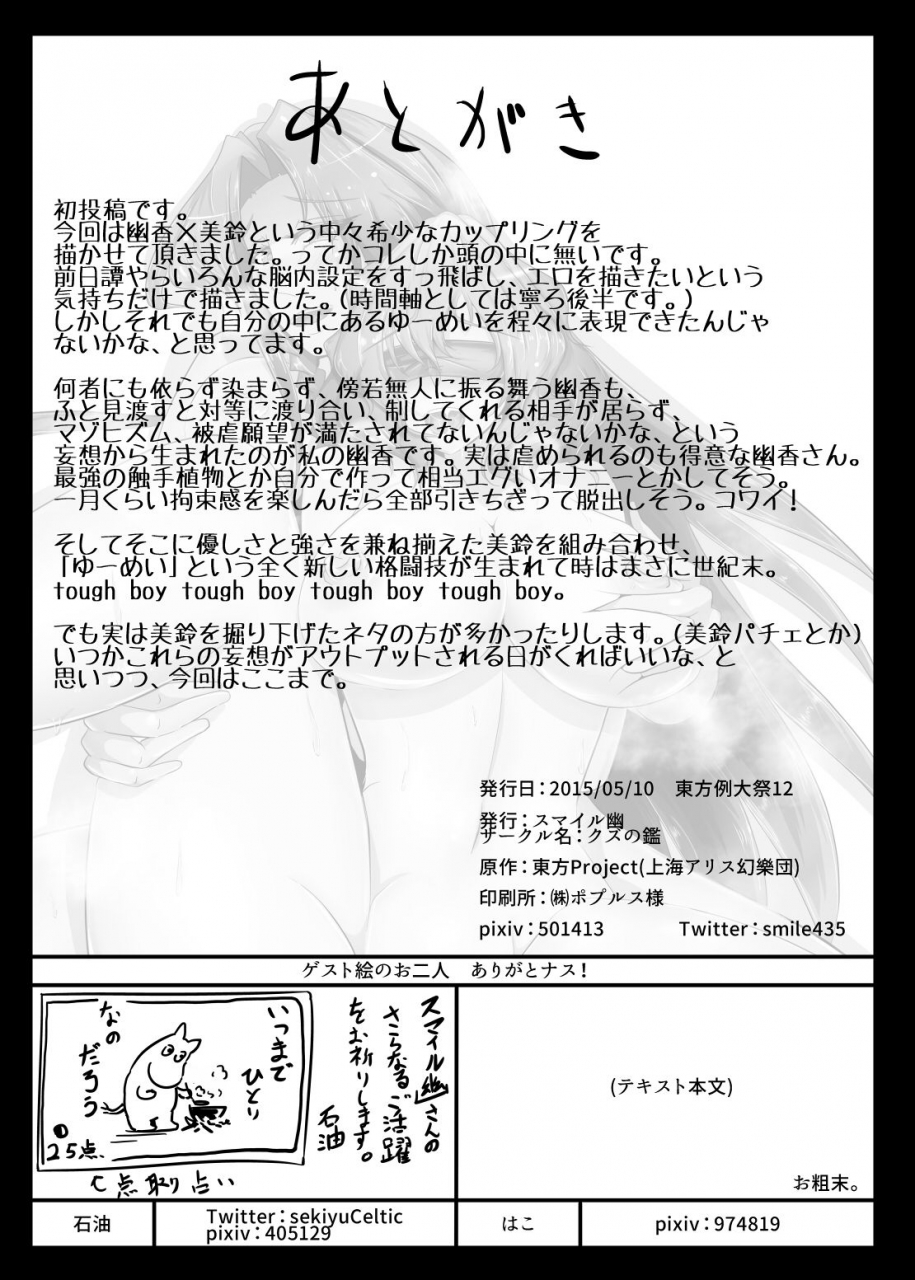 あとがき
初投稿です。
今回は幽香×美鈴という中々希少なカップリングを
描かせて頂きました。ってかコレしか頭の中に無いです。
前日譚やらいろんな脳内設定をすっ飛ばし、エロを描きたいという
気持ちだけで描きました。(時間軸としては寧ろ後半です。)
しかしそれでも自分の中にあるゆーめいを程々に表現できたんじゃ
ないかな、と思ってます。
何者にも依らず染まらず、傍若無人に振る舞う幽香も
ふと見渡すと対等に渡り合い、制してくれる相手が居らず、
マゾヒズム、被虐願望が満たされてないんじゃないかな、という
妄想から生まれたのが私の幽香です。実は虐められるのも得意な幽香さん。
最強の触手植物とか自分で作って相当エグいオナニーとかしてそう。
一月くらい拘束感を楽しんだら全部引きちぎって脱出しそう。コワイ!
そしてそこに優しさと強さを兼ね揃えた美鈴を組み合わせ、
「ゆーめい」という全く新しい格闘技が生まれて時はまさに世紀末。
tough boy tough boy tough boy tough boy。
でも実は美鈴を掘り下げたネタの方が多かったりします。(美鈴パチェとか)
いつかこれらの妄想がアウトプットされる日がくればいいな、と
思いつつ、今回はここまで。
発行日:2015/05/10 東方例大祭12
発行:スマイル幽
サークル名:クズの鑑
原作:東方Project(上海アリス幻樂団)
印刷所:㈱ポプルス様
pixiv:501413 Twitter:smile435
ゲスト絵のお二人 ありがとナス!
スマイル幽さんの
さらなるご活躍
をお祈りします。
石油
いつまで
ひとり
なの
だろう
❶25点、
て点取り占い
(テキスト本文)
お粗末。
石油
Twitter:sekiyuCeltic
pixiv:405129
はこ
pixiv:974819